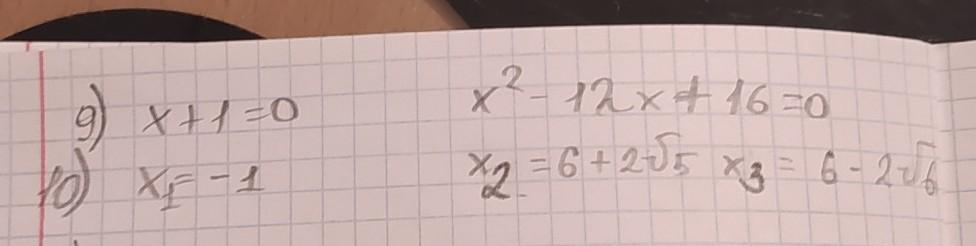 9) x+1=0 x²-12x+16=0
10) x₁=-1 x₂=6+2√5 x₃=6-2√6